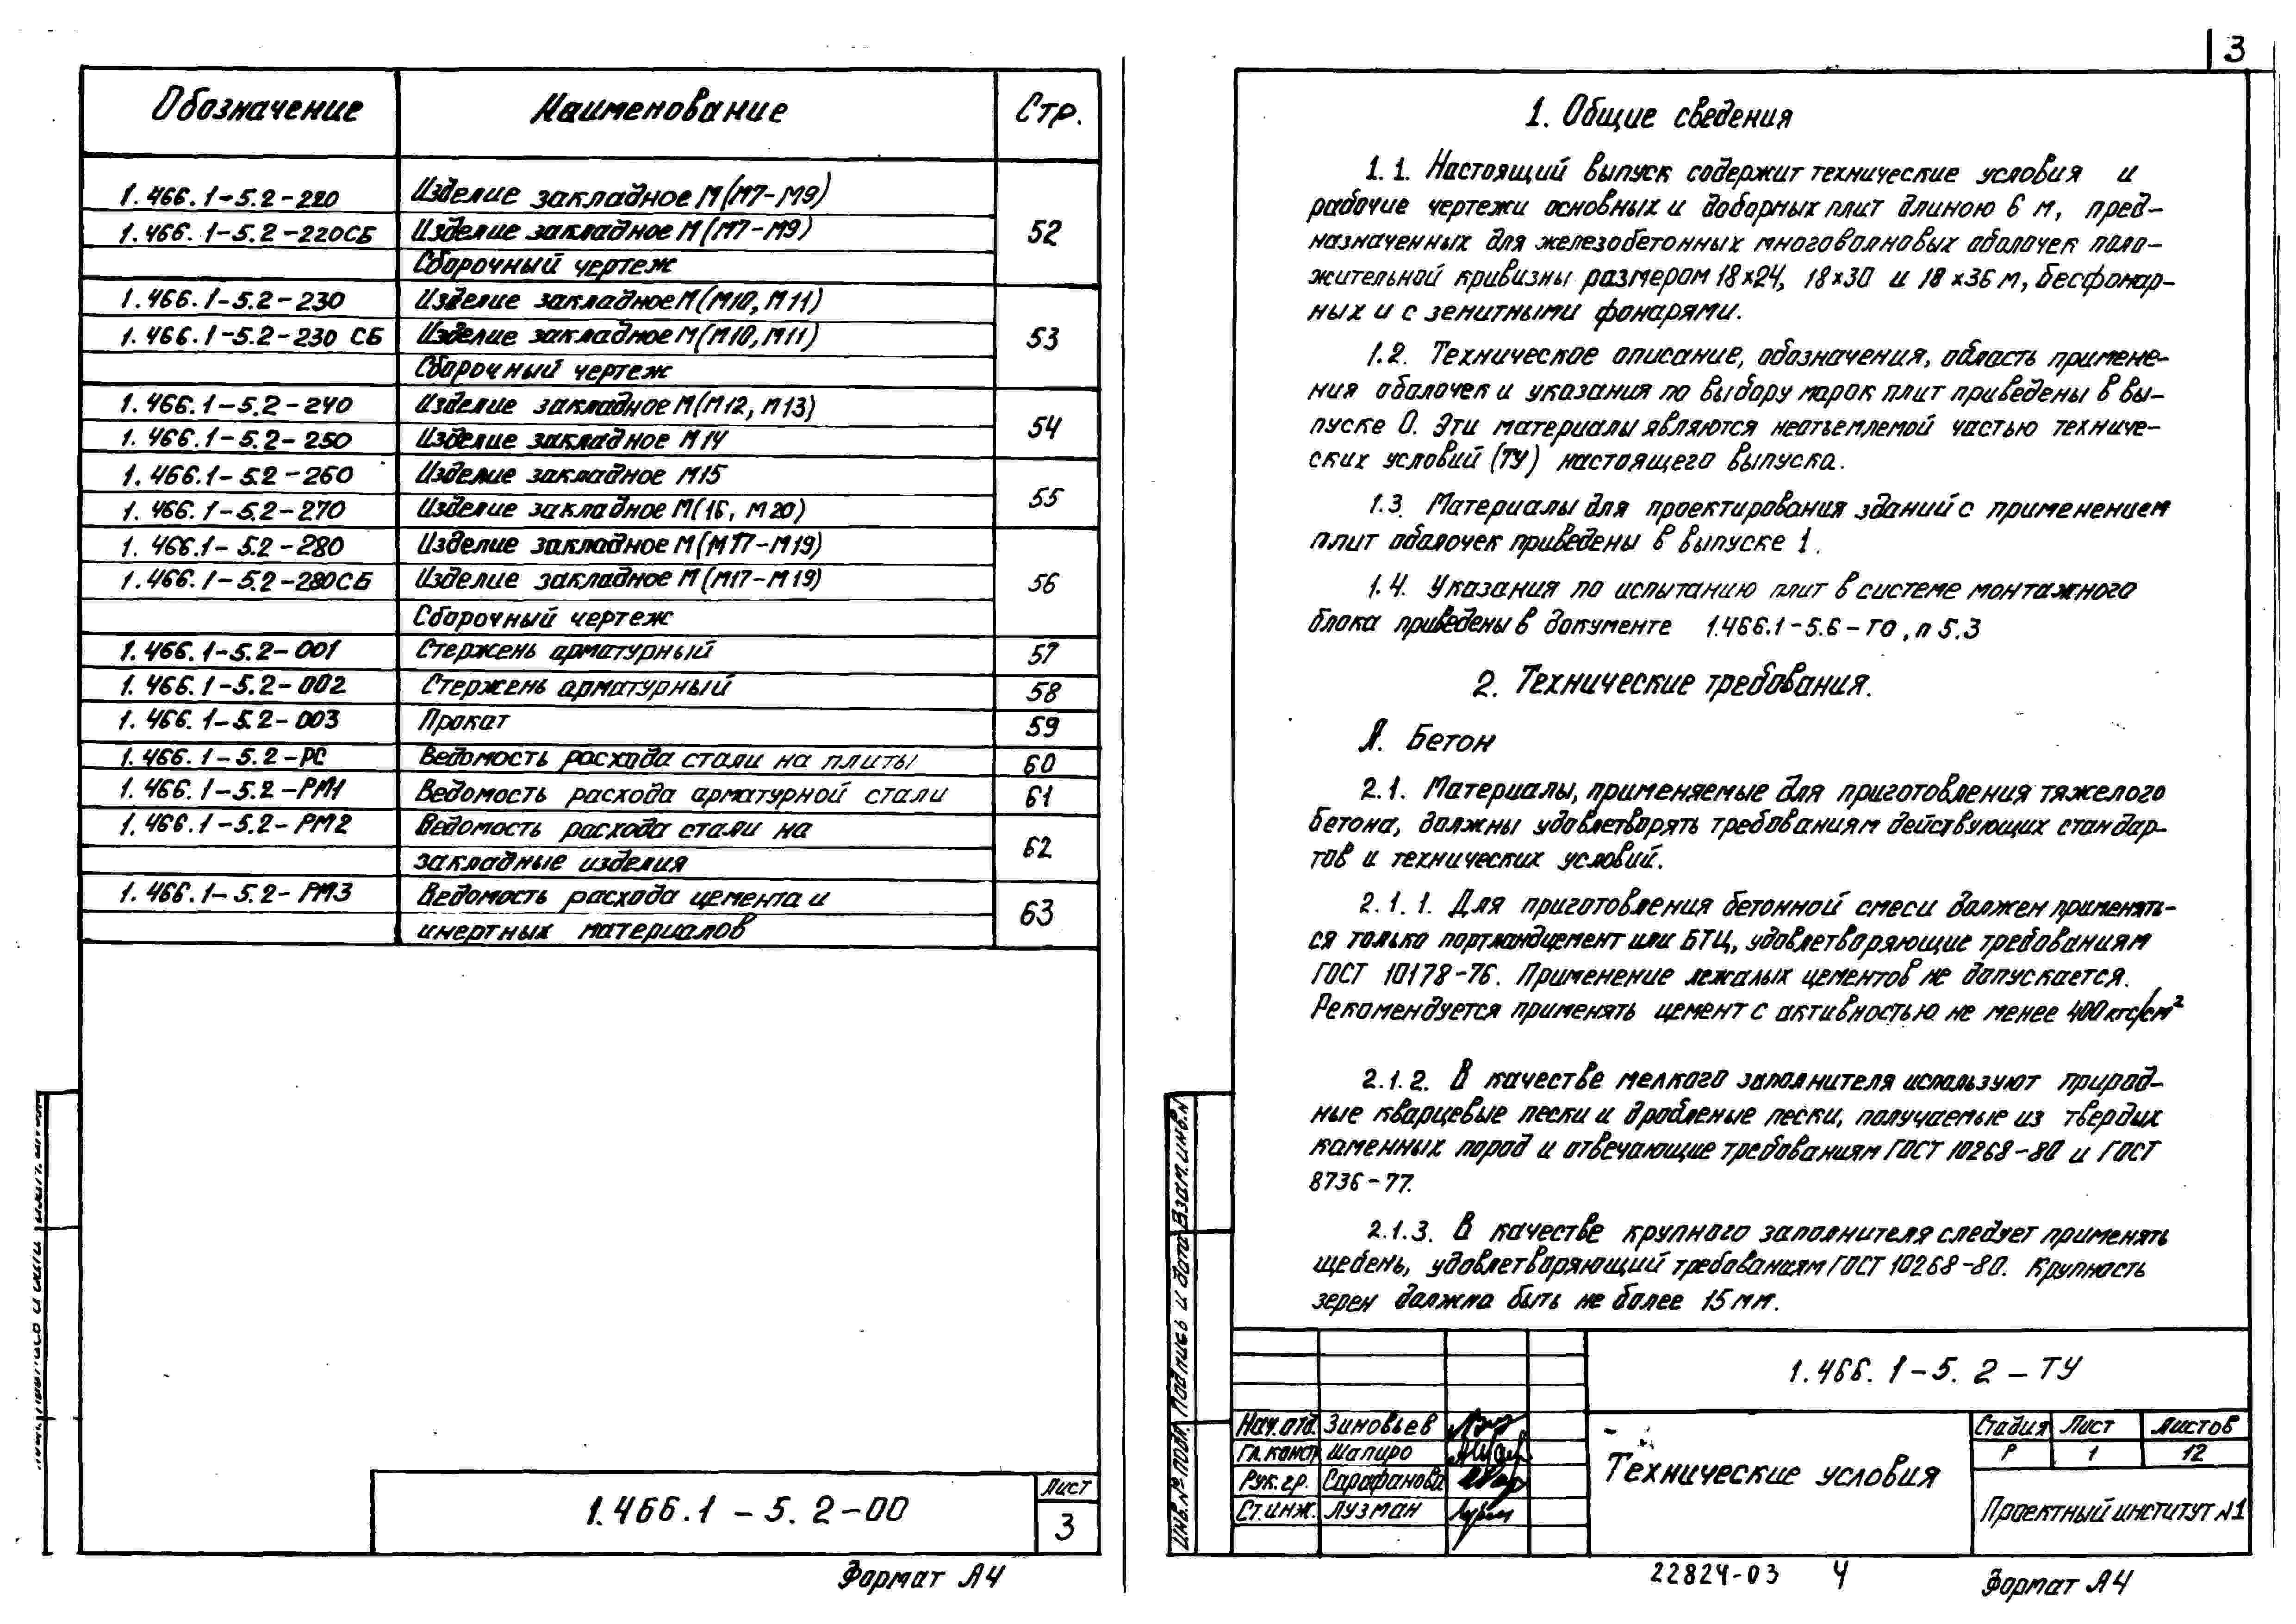 Обозначение Наименование Стр.
1.466.1-5.2-220 Изделие закладное М(М7-М9)
1.466.1-5.2-220СБ Изделие закладное М(М7-М9) 52
Сборочный чертеж
1.466.1-5.2-230 Изделие закладное М(М10, М11)
1.466.1-5.2-230 СБ Изделие закладное М(М10, М11) 53
Сборочный чертеж
1.466.1-5.2-240 Изделие закладное М(М12, М13)
54
1.466.1-5.2-250 Изделие закладное М14
1.466.1-5.2-260 Изделие закладное М15
55
1.466.1-5.2-270 Изделие закладное М(16, М20)
1.466.1-5.2-280 Изделие закладное М(М17-М19)
1.466.1-5.2-280СБ Изделие закладное М(М17-М19) 56
Сборочный чертеж
1.466.1-5.2-001 Стержень арматурный 57
1.466.1-5.2-002 Стержень арматурный 58
1.466.1-5.2-003 Прокат 59
1.466.1-5.2-РС Ведомость расхода стали на плиты 60
1.466.1-5.2-РМ1 Ведомость расхода арматурной стали 61
1.466.1-5.2-РМ2 Ведомость расхода стали на
62
закладные изделия
1.466.1-5.2-РМ3 Ведомость расхода цемента и
63
инертных материалов
1.466.1-5.2-00
Лист
3
Формат А4
3
1. Общие сведения
1.1. Настоящий выпуск содержит технические условия и
рабочие чертежи основных и доборных плит длиною 6 м, пред-
назначенных для железобетонных многоволновых оболочек поло-
жительной кривизны размером 18х24, 18х30 и 18х36 м, бесфонар-
ных и с зенитными фонарями.
1.2. Техническое описание, обозначения, область примене-
ния оболочек и указания по выбору марок плит приведены в вы-
пуске 0. Эти материалы являются неотъемлемой частью техниче-
ских условий (ТУ) настоящего выпуска.
1.3. Материалы для проектирования зданий с применением
плит оболочек приведены в выпуске 1.
1.4. Указания по испытанию плит в системе монтажного
блока приведены в документе 1.466.1-5.6-ТО, п 5.3
2. Технические требования.
А. Бетон
2.1. Материалы, применяемые для приготовления тяжелого
бетона, должны удовлетворять требованиям действующих стандар-
тов и технических условий.
2.1.1. Для приготовления бетонной смеси должен применять-
ся только портландцемент или БТЦ, удовлетворяющие требованиям
ГОСТ 10178-76. Применение лежалых цементов не допускается.
Рекомендуется применять цемент с активностью не менее 400 кгс/см²
2.1.2. В качестве мелкого заполнителя используют природ-
ные кварцевые пески и дробленые пески, получаемые из твердых
каменных пород и отвечающие требованиям ГОСТ 10268-80 и ГОСТ
8736-77.
2.1.3. В качестве крупного заполнителя следует применять
щебень, удовлетворяющий требованиям ГОСТ 10268-80. Крупность
зерен должна быть не более 15 мм.
Инв.№ подл. Подпись и дата Взам.инв.н
1.466.1-5.2-ТУ
Нач.отд. Зиновьев
Гл.констр Шапиро
Рук.гр. Сарафанова
Ст.инж. Лузман
Технические условия
Стадия Лист Листов
Р 1 12
Проектный институт №1
22824-03 4
Формат А4